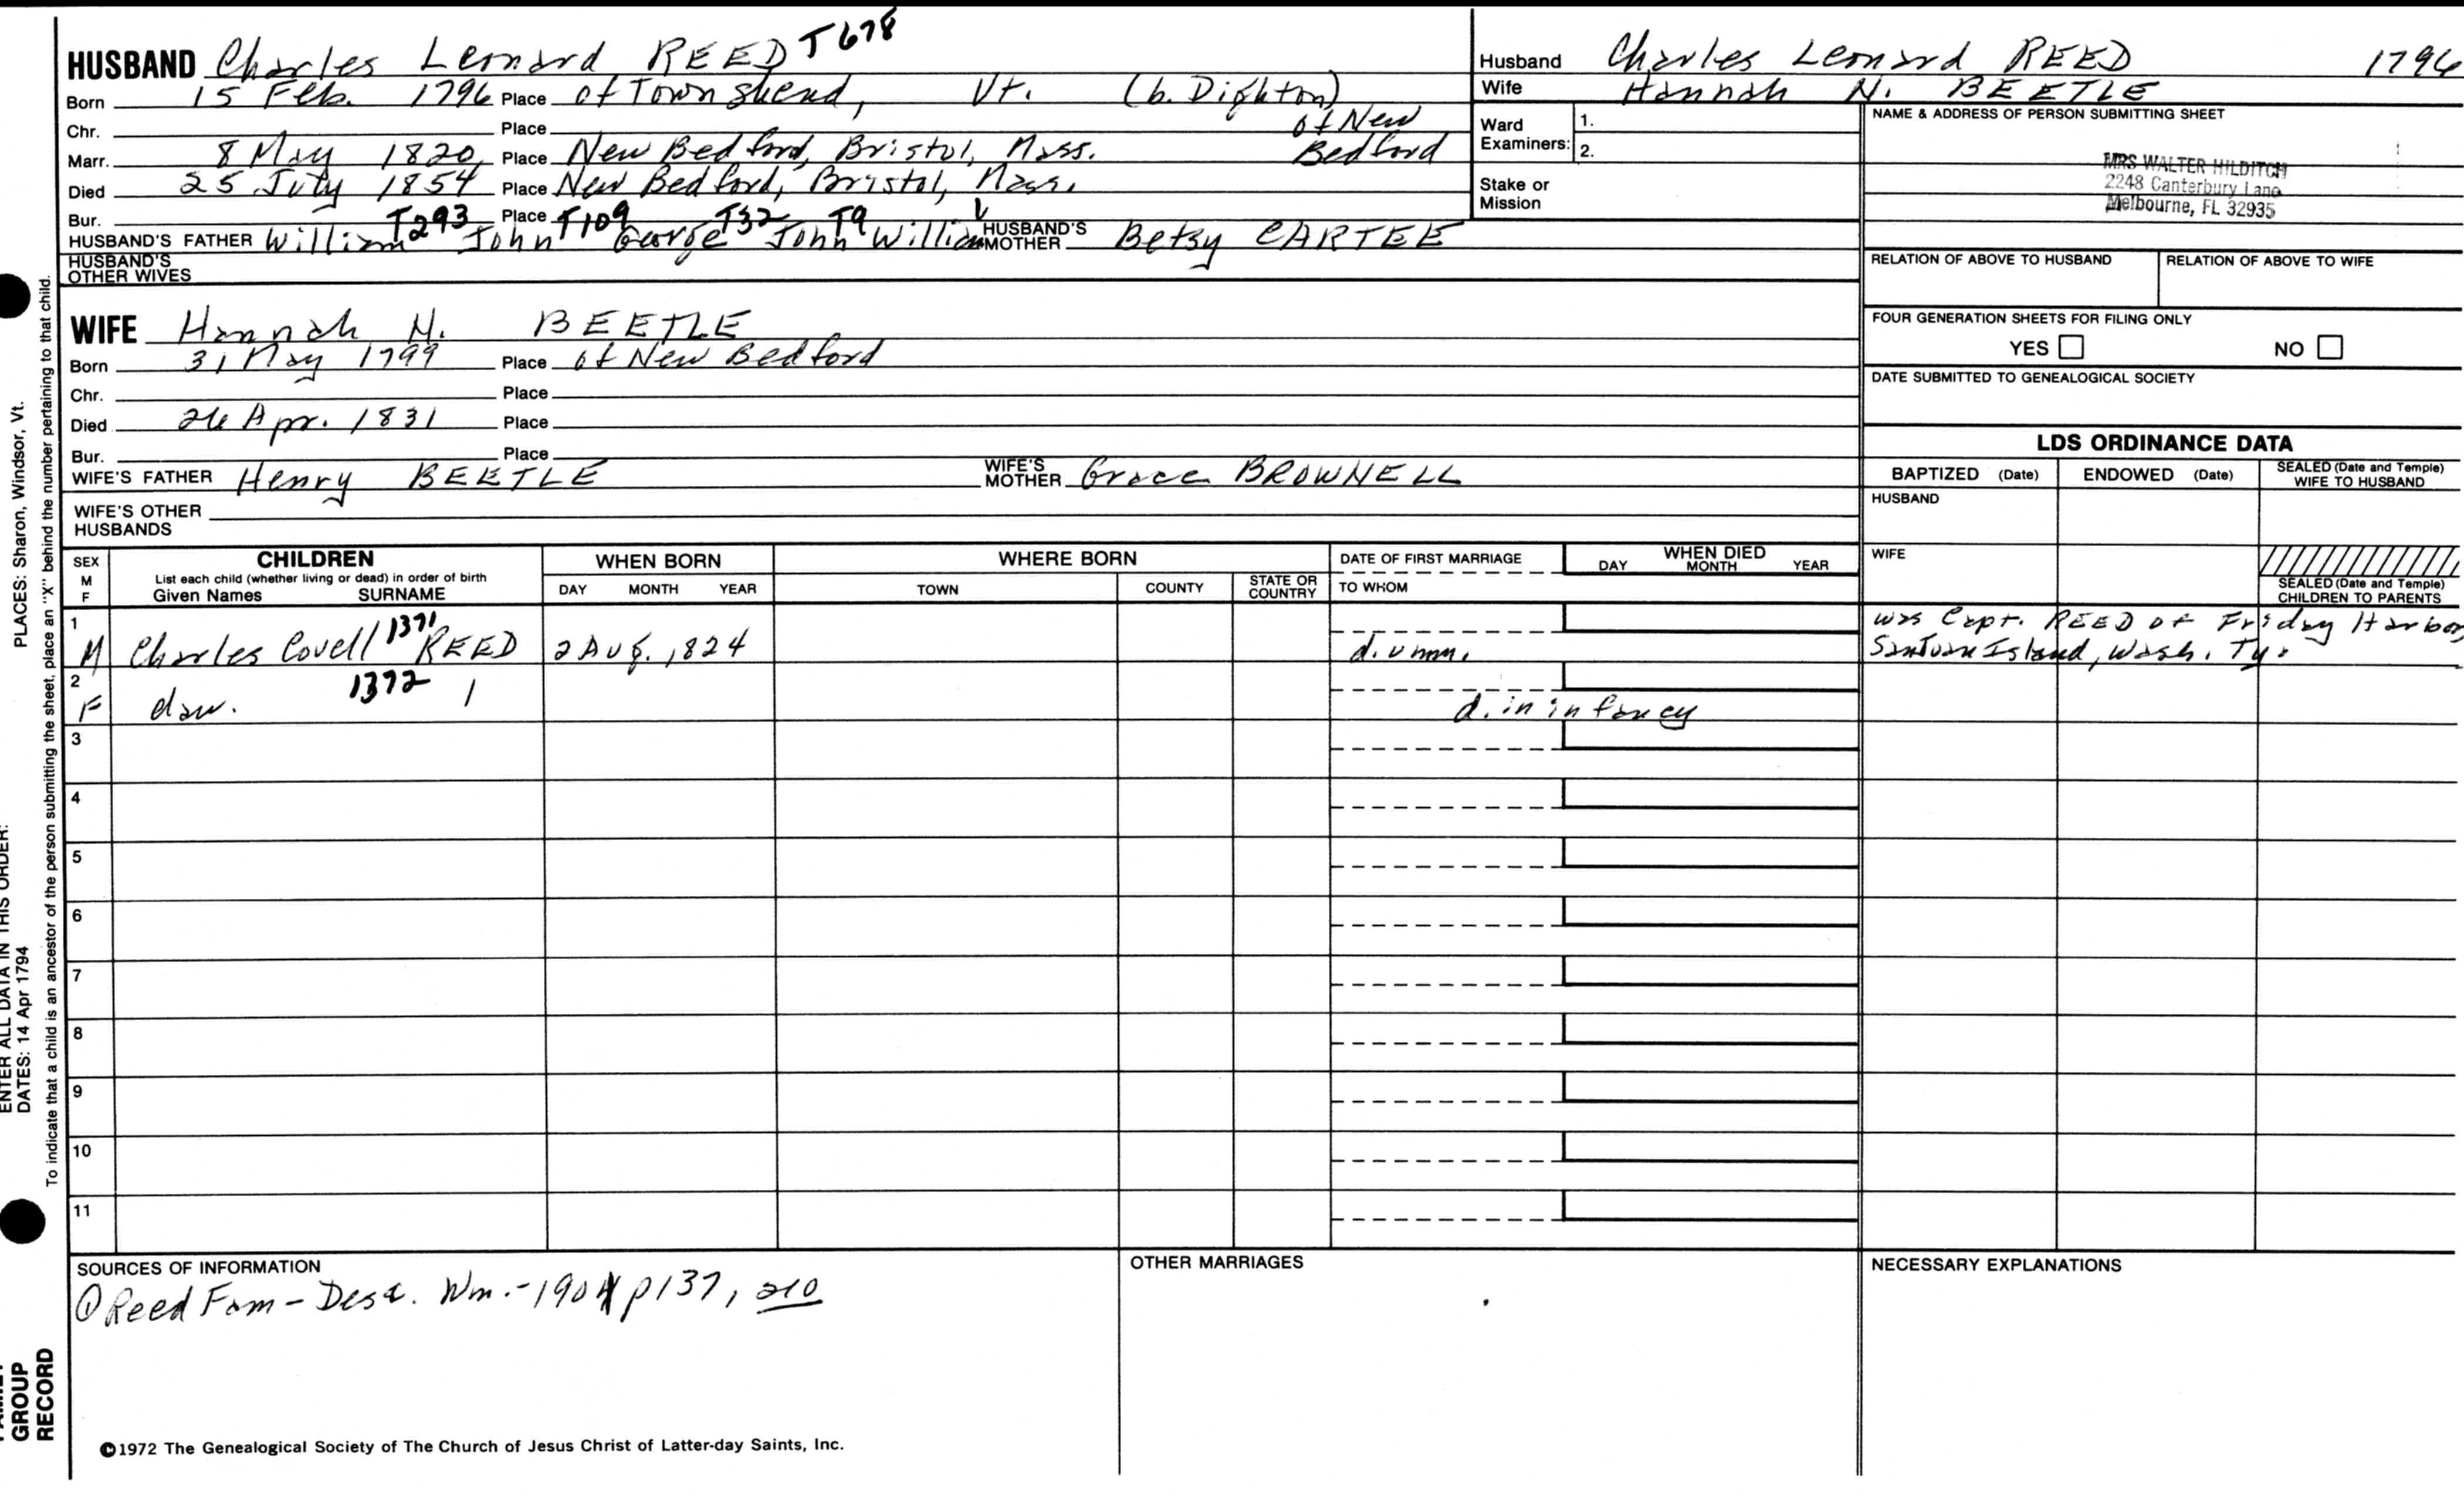 HUSBAND Charles Leonard REED T678
Born 15 Feb. 1796 Place of Townshend, Vt. (b. Dighton)
Chr. Place of New
Marr. 8 May 1820 Place New Bedford, Bristol, Mass. Bedford
Died 25 July 1854 Place New Bedford, Bristol, Mass.
Bur. Place
HUSBAND'S FATHER William T293 John T109 George T32 John T9 William HUSBAND'S MOTHER Betsy CARTEE
HUSBAND'S OTHER WIVES
WIFE Hannah N. BEETLE
Born 31 May 1799 Place of New Bedford
Chr. Place
Died 26 Apr. 1831 Place
Bur. Place
WIFE'S FATHER Henry BEETLE WIFE'S MOTHER Grace BROWNELL
WIFE'S OTHER HUSBANDS
Husband Charles Leonard REED 1796
Wife Hannah N. BEETLE
Ward Examiners: 1.
2.
Stake or Mission
NAME & ADDRESS OF PERSON SUBMITTING SHEET
MRS WALTER HILDITCH
2248 Canterbury Lane
Melbourne, FL 32935
RELATION OF ABOVE TO HUSBAND RELATION OF ABOVE TO WIFE
FOUR GENERATION SHEETS FOR FILING ONLY
YES NO
DATE SUBMITTED TO GENEALOGICAL SOCIETY
LDS ORDINANCE DATA
BAPTIZED (Date) ENDOWED (Date) SEALED (Date and Temple) WIFE TO HUSBAND
HUSBAND
WIFE
SEALED (Date and Temple) CHILDREN TO PARENTS
SEX M F CHILDREN WHEN BORN WHERE BORN DATE OF FIRST MARRIAGE WHEN DIED
List each child (whether living or dead) in order of birth
Given Names SURNAME DAY MONTH YEAR TOWN COUNTY STATE OR COUNTRY TO WHOM DAY MONTH YEAR
1 M Charles Covell 1371 REED 2 Aug. 1824 d. unm. was Capt. REED of Friday Harbor,
San Juan Island, Wash. Ty.
2 F dau. 1372 / d. in infancy
3
4
5
6
7
8
9
10
11
SOURCES OF INFORMATION
① Reed Fam - Desc. Wm. - 1904 p137, 210
OTHER MARRIAGES
NECESSARY EXPLANATIONS
©1972 The Genealogical Society of The Church of Jesus Christ of Latter-day Saints, Inc.
ENTER ALL DATA IN THIS ORDER:
DATES: 14 Apr 1794
PLACES: Sharon, Windsor, Vt.
To indicate that a child is an ancestor of the person submitting the sheet, place an "X" behind the number pertaining to that child.
GROUP
RECORD